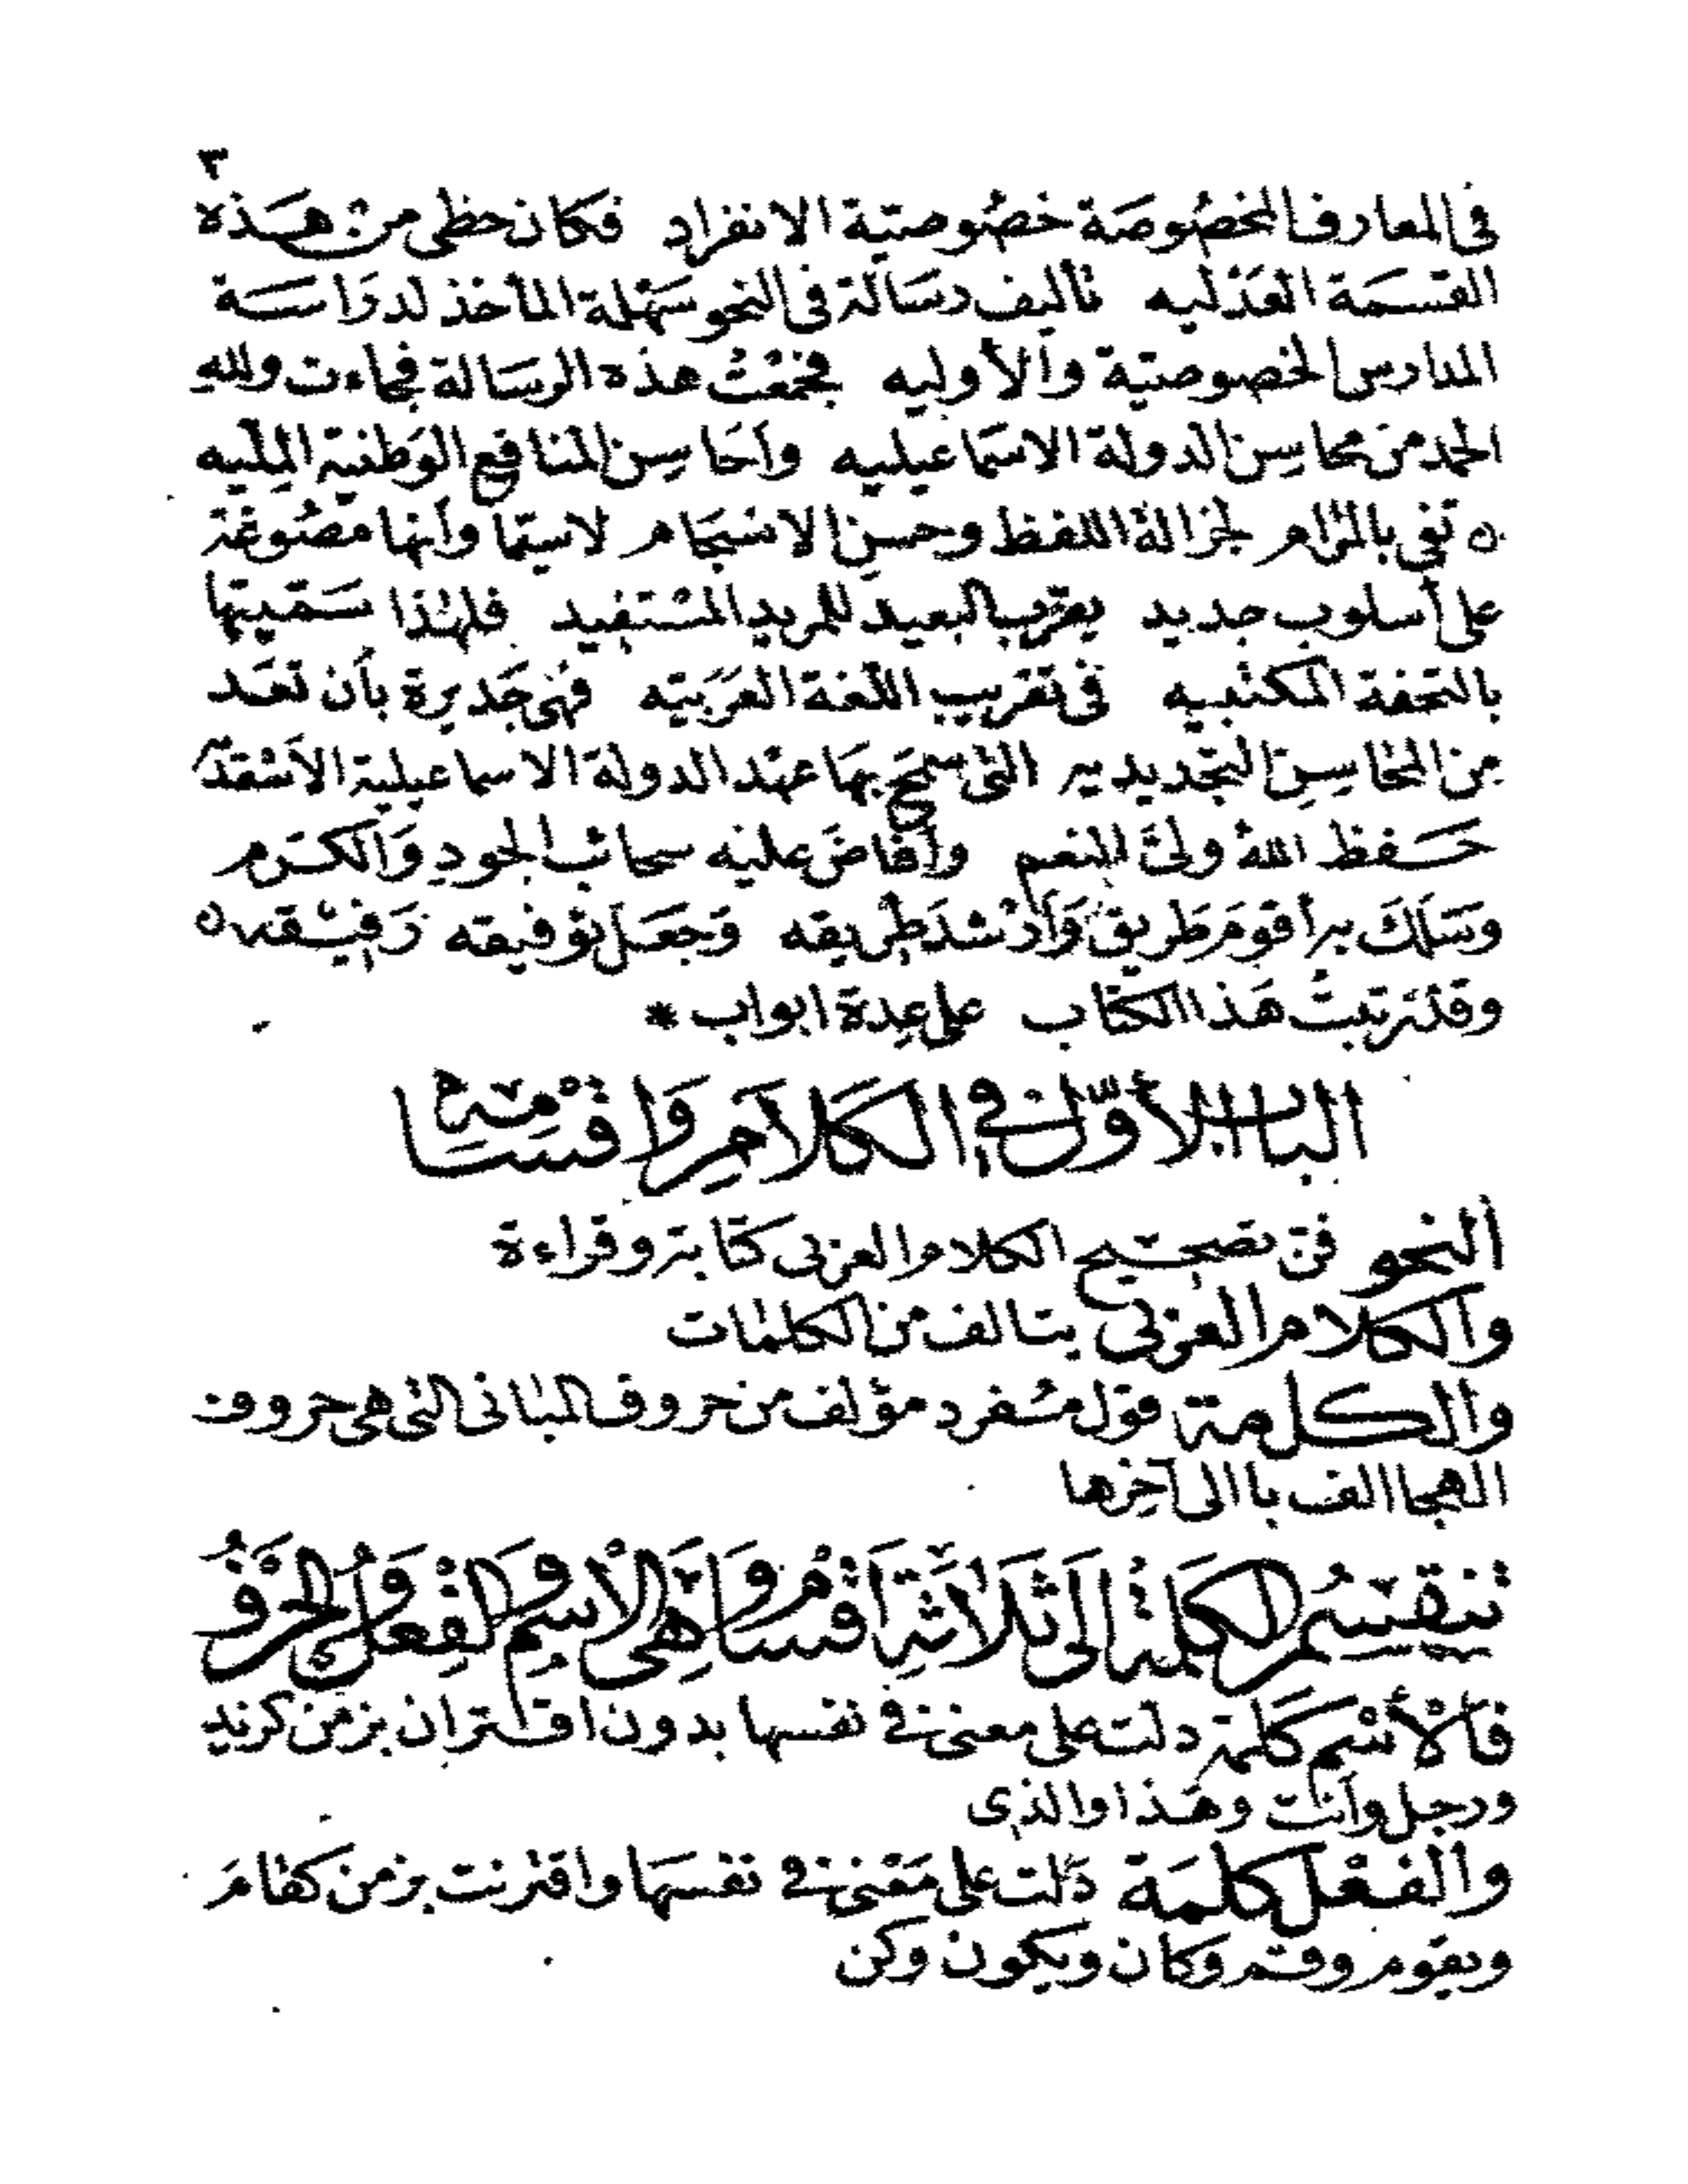 ٣
في المعارف المخصُوصَة خصُوصيّة الانفراد فكان حظي من هَذه
القسمَة العَدْليه تأليف رسَالة في النحو سَهْلة المأخذ لدرَاسَة
المدارس الخصوصيّة والأوليه فجمَعْتُ هذه الرسَالة فجاءت ولله
الحمد من محاسِن الدولة الاسمَاعيليه وأحَاسِن المنافع الوَطنيّة المِلّيه
تفي بالمرام لجزالة اللفظ وحسن الانسجام لاسيّما وأنها مصُوغة
على أسلوب جديد يقرّب البعيد للمريد المسْتفيد فلهذا سَمّيتها
بالتحفة المكتبيه في تقريب اللغة العَرَبيّه فهي جَديرة بأن تعَد
مِن المحاسِن التجديديه التي سمَح بهَا عهْد الدولة الاسماعيلية الأسْعَد
حَفظ اللهُ وليَّ النعم وأفاضَ عليْه سحائب الجود وَالكَرم
وسَلَكَ به أقومَ طَريق وَأرْشدَ طَريقه وَجَعَل توفيقه رَفيْقه
وقد رتبتُ هَذا الكتاب على عِدة ابواب *
الباب الأوّل في الكَلامِ وَاقسَامِه
ألنحو فن تصحيح الكلام العربي كتابة وقراءة
والكلام العربي يتالف من الكلمات
والكلمة قول مُفرد مؤلف من حروف المباني التي هي حروف
الهجا الف با الى آخِرها
تنقسِمُ الكَلِمَة إلَى ثَلَاثَةِ اَقْسَامٍ وَهِيَ الْاسِمُ وَالفِعْلُ وَالحَرْفُ
فَالْأسْم كَلمة دلت على معنى في نفسها بدون اقتران بزمن كزيد
ورجل وأنت وهَذا والذي
والفعْل كلمَة دَلت على مَعْنى في نفسهَا واقترنت بزمن كقامَ
ويقوم وقم وكان ويكون وكن